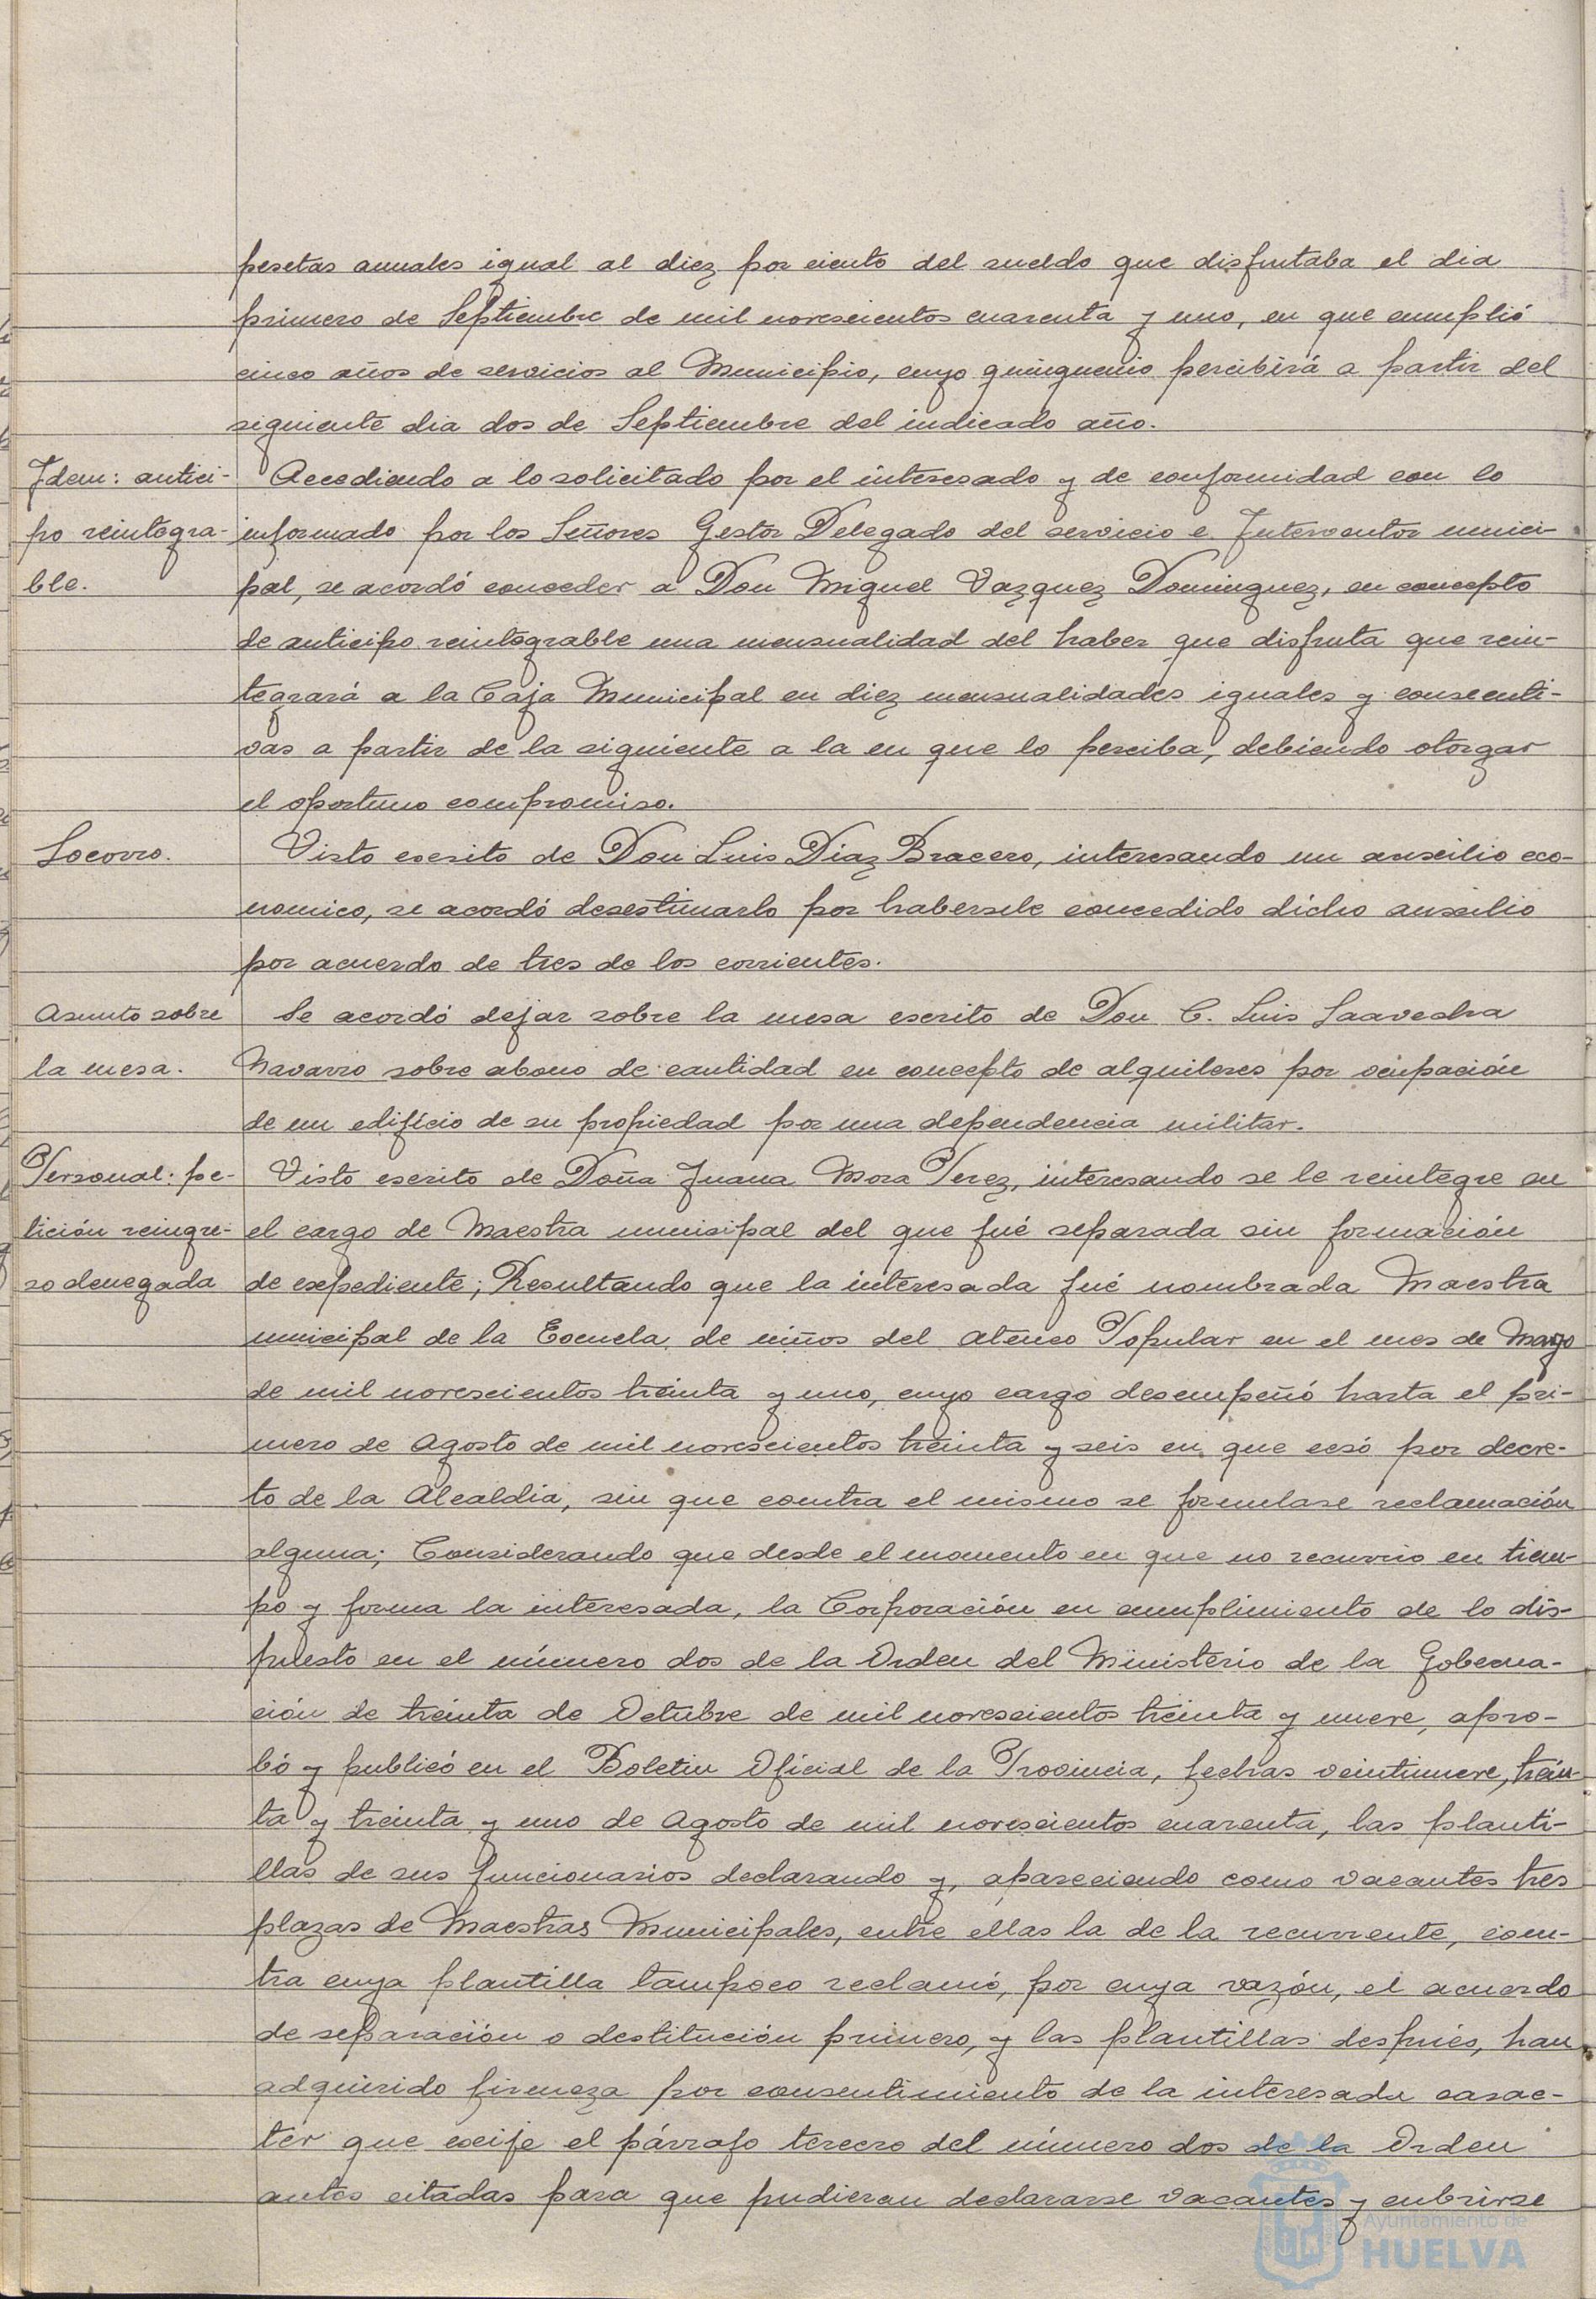 pesetas anuales igual al diez por ciento del sueldo que disfrutaba el dia
primero de Septiembre de mil novescientos cuarenta y uno, en que cumplió
cinco años de servicios al Municipio, cuyo quinquenio percibirá a partir del
siguiente dia dos de Septiembre del indicado año.
Idem: antici-
po reintegra-
ble.
Accediendo a lo solicitado por el interesado y de conformidad con lo
informado por los Señores Gestor Delegado del servicio e Interventor munici-
pal, se acordó conceder a Don Miguel Vazquez Dominguez, en concepto
de anticipo reintegrable una mensualidad del haber que disfruta que rein-
tegrará a la Caja Municipal en diez mensualidades iguales y consecuti-
vas a partir de la siguiente a la en que lo perciba, debiendo otorgar
el oportuno compromiso.
Socorro.
Visto escrito de Don Luis Díaz Bracero, interesando un auxilio eco-
nomico, se acordó desestimarlo por habersele concedido dicho auxilio
por acuerdo de tres de los corrientes.
Asunto sobre
la mesa.
Se acordó dejar sobre la mesa escrito de Don C. Luis Saavedra
Navarro sobre abono de cantidad en concepto de alquileres por ocupación
de un edificio de su propiedad por una dependencia militar.
Personal: pe-
tición reingre-
so denegada
Visto escrito de Doña Juana Mora Perez, interesando se le reintegre en
el cargo de Maestra municipal del que fué separada sin formación
de expediente; Resultando que la interesada fué nombrada Maestra
municipal de la Escuela de niños del Ateneo Popular en el mes de Mayo
de mil novescientos treinta y uno, cuyo cargo desempeñó hasta el pri-
mero de Agosto de mil novescientos treinta y seis en que cesó por decre-
to de la Alcaldia, sin que contra el mismo se formulase reclamación
alguna; Considerando que desde el momento en que no recurrio en tiem-
po y forma la interesada, la Corporación en cumplimiento de lo dis-
puesto en el número dos de la Orden del Ministerio de la Goberna-
ción de treinta de Octubre de mil novescientos treinta y nueve, apro-
bó y publicó en el Boletin Oficial de la Provincia, fechas veintinueve, trein-
ta y treinta y uno de Agosto de mil novescientos cuarenta, las planti-
llas de sus funcionarios declarando y, apareciendo como vacantes tres
plazas de Maestras Municipales, entre ellas la de la recurrente, con-
tra cuya plantilla tampoco reclamó, por cuya razón, el acuerdo
de separación o destitución primero, y las plantillas después, han
adquirido firmeza por consentimiento de la interesada carac-
ter que exije el párrafo tercero del número dos de la Orden
antes citadas para que pudieran declararse vacantes y cubrirse
Ayuntamiento de
HUELVA